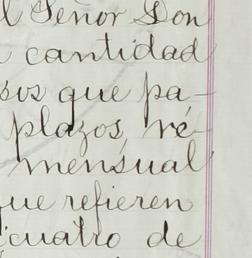 l Señor Don
cantidad
sos que pa-
plazos, ré-
mensual
que refieren
icuatro de